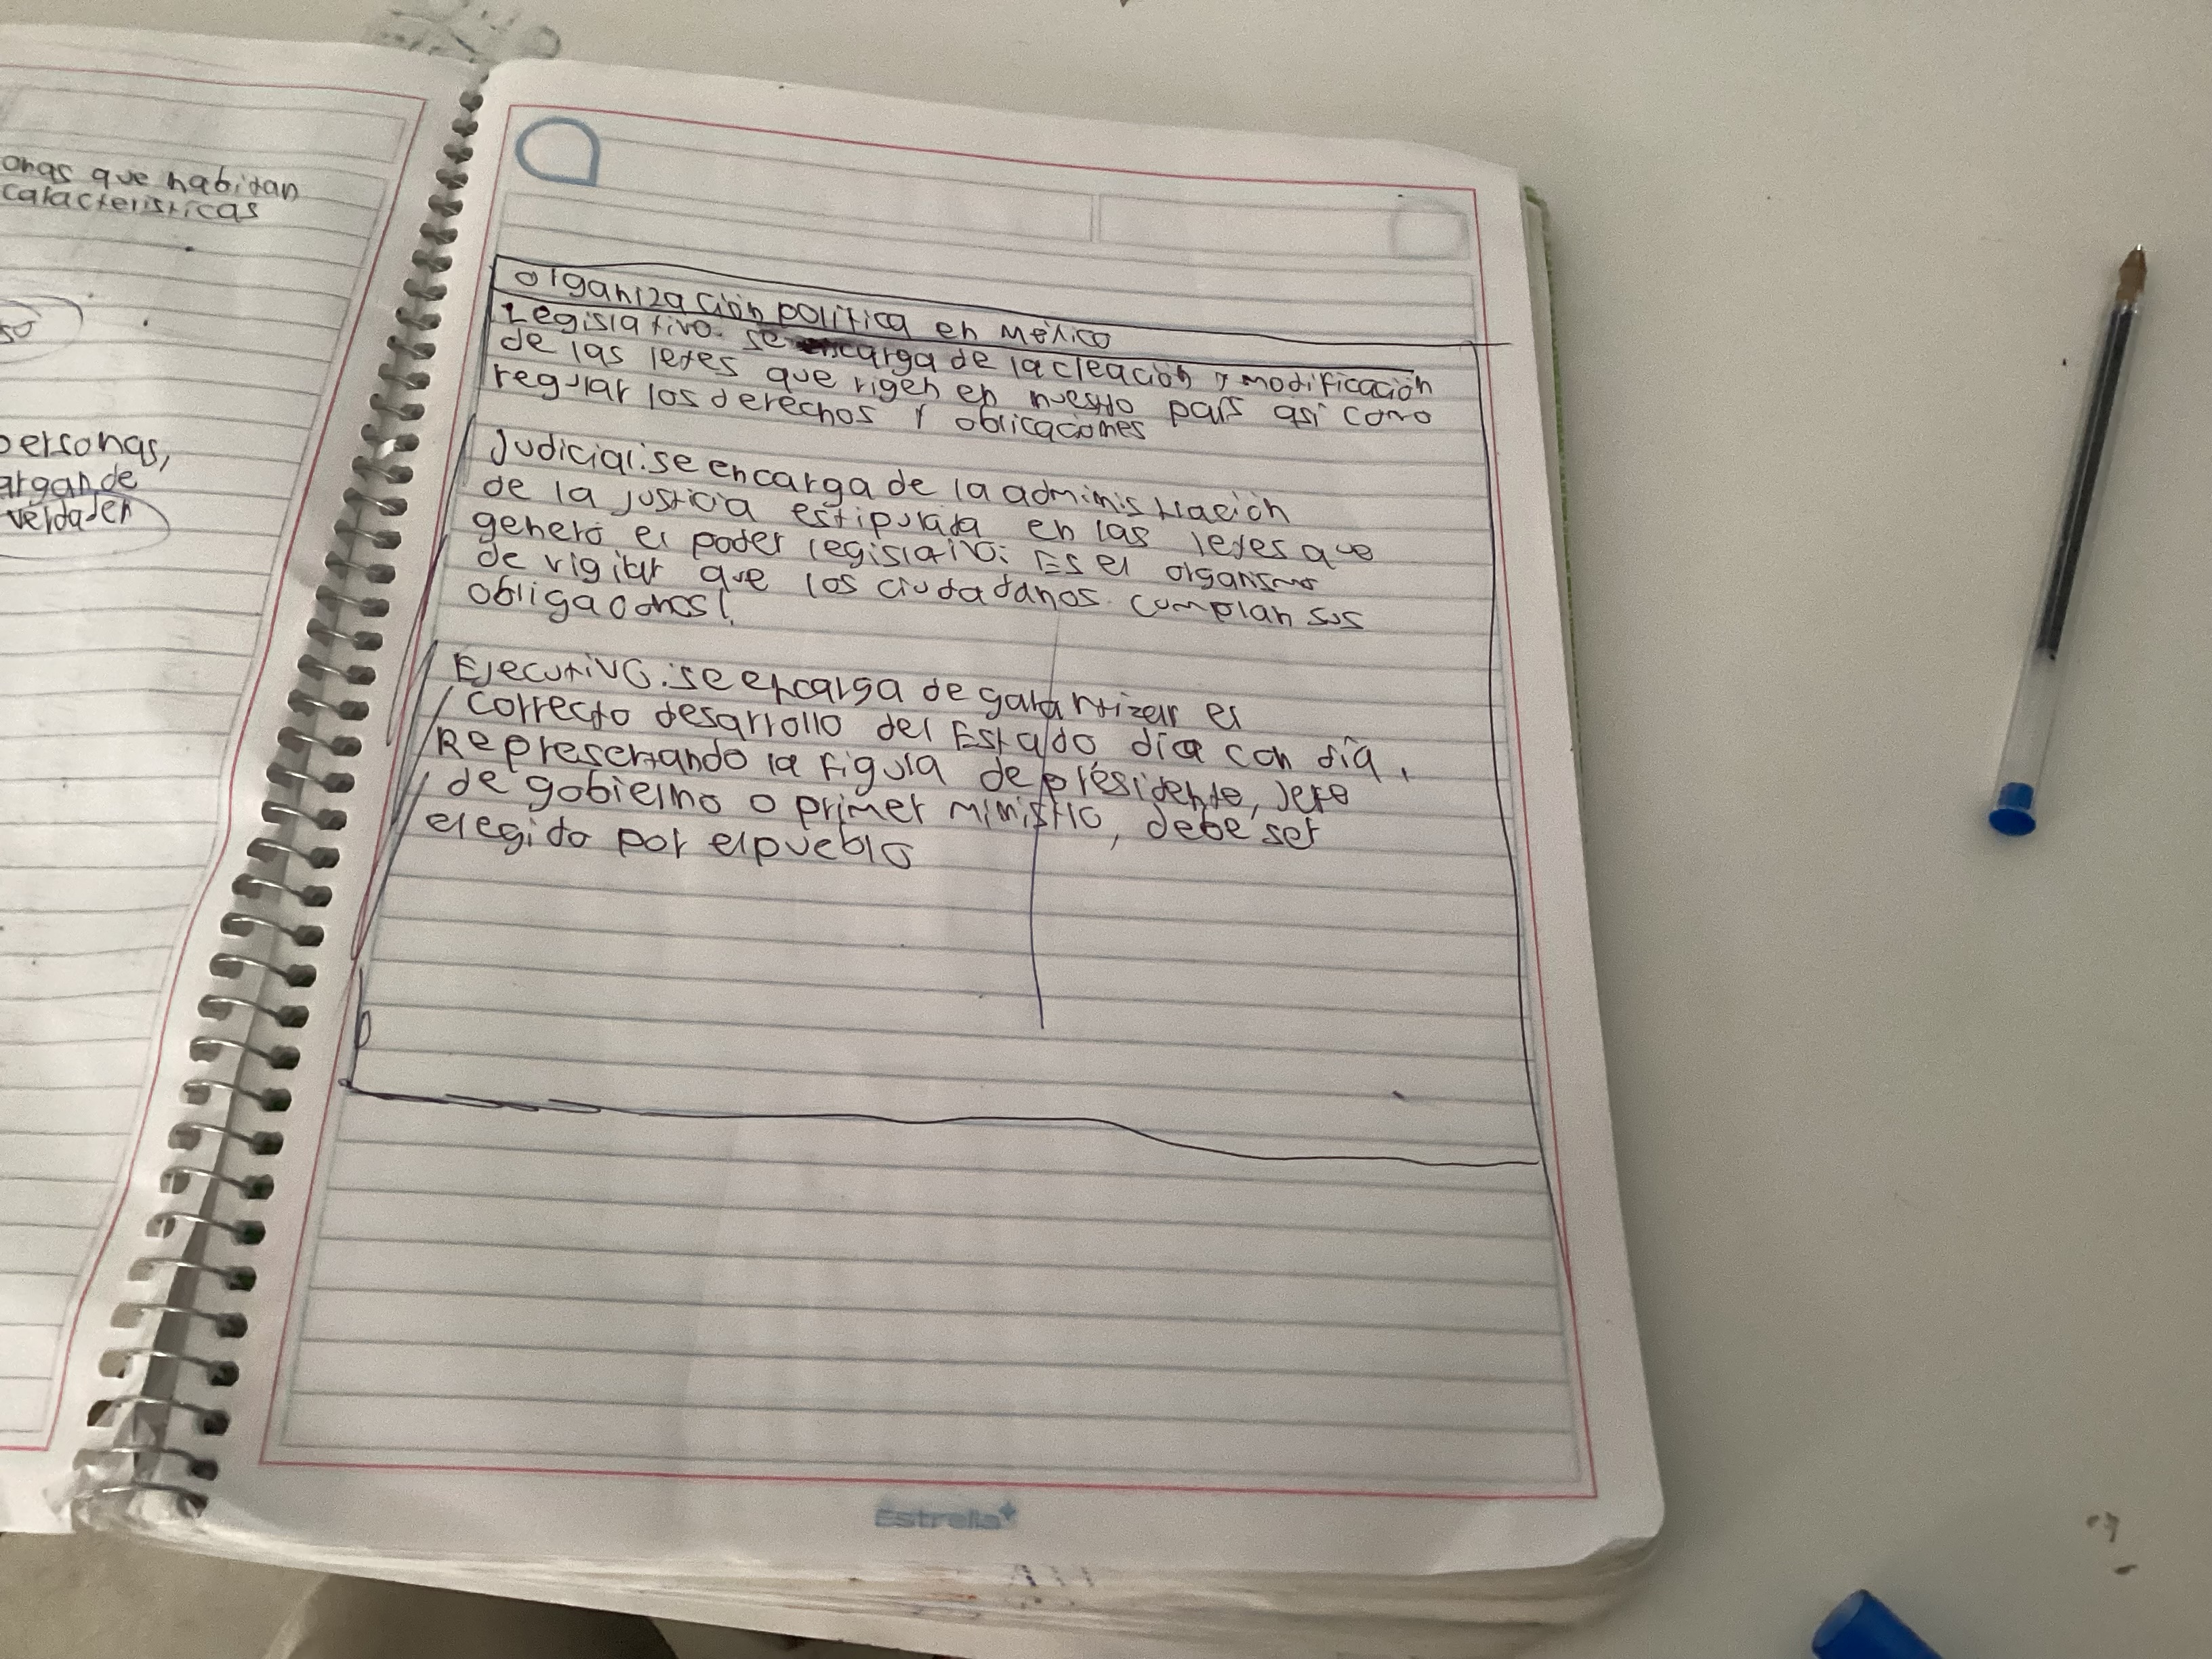 onas que habitan
caracteristicas
so
personas,
argan de
verdader
organización política en México
Legislativo. se encarga de la creación y modificación
de las leyes que rigen en nuestro país así como
regular los derechos y oblicaciones
Judicial. se encarga de la administración
de la justicia estipulada en las leyes que
generó el poder legislativo: Es el organismo
de vigilar que los ciudadanos. cumplan sus
obligaciones!
Ejecutivo. se encarga de garantizar el
correcto desarrollo del Estado día con día,
Representando la figura de presidente, jefe
de gobierno o primer ministro, debe ser
elegido por el pueblo
Estrella